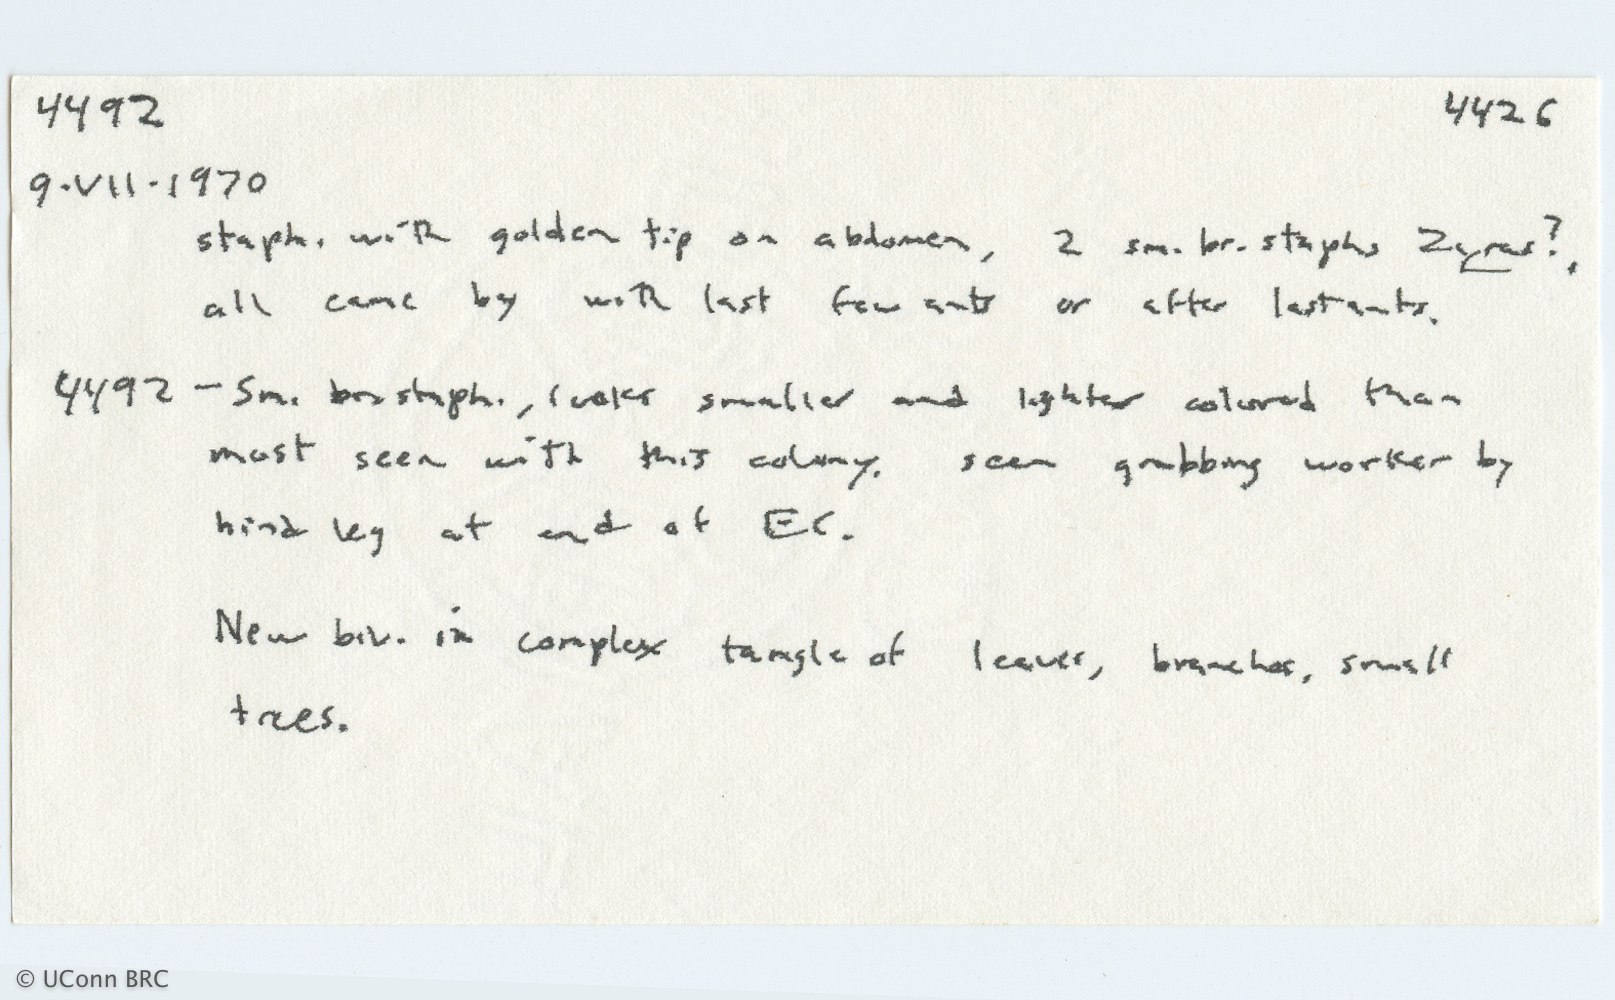 4492 4426
9·VII·1970
staph. with golden tip on abdomen, 2 sm. br. staphs Zyras?,
all came by with last few ants or after last ants.
4492 – Sm. brn staph., looks smaller and lighter colored than
most seen with this colony. seen grabbing worker by
hind leg at end of EC.
New biv. in complex tangle of leaves, branches, small
trees.
© UConn BRC